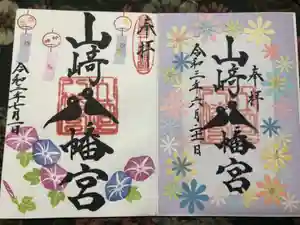 奉拝
山崎八幡宮
令和三年七月一日
奉拝
山崎八幡宮
令和三年六月